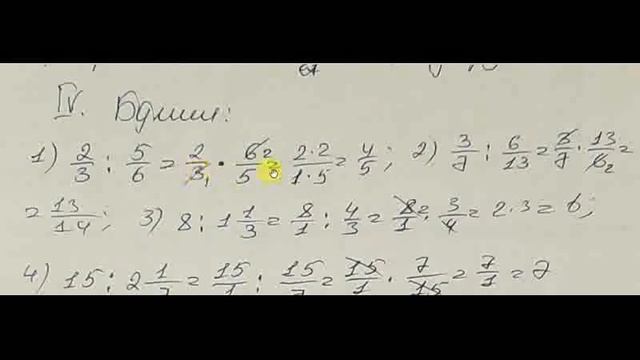 IV. Бөлиш:
1) 2/3 : 5/6 = 2/3 1 · 6 2/5 = 2·2/1·5 = 4/5; 2) 3/7 : 6/13 = 3/7 · 13/6 2 =
= 13/14; 3) 8 : 1 1/3 = 8/1 : 4/3 = 8 2/1 · 3/4 = 2·3 = 6;
4) 15 : 2 1/7 = 15/1 : 15/7 = 15/1 · 7/15 = 7/1 = 7